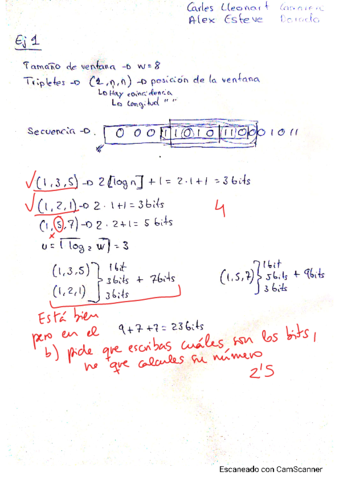 Carles Lleonart
Alex Esteve
Ej 1
Tamaño de ventana -o w=8
Tripletes -o (1,n,n) -o posición de la ventana
Lo Hay coincidencia
Lo longitud " "
Secuencia -o 0 0 0 1 1 0 1 0 1 1 0 0 0 1 0 1 1
√(1,3,5) -o 2⌊log n⌋ + 1 = 2·1+1 = 3bits
√(1,2,1) -o 2·1+1 = 3bits
4
(1,5,7) -o 2·2+1 = 5 bits
x
u=⌈log₂ w⌉ = 3
(1,3,5)
(1,2,1)
1bit
3bits + 7bits
3bits
(1,5,7)
1bit
5bits + 9bits
3bits
Está bien
pero en el
9+7+7 = 23bits
b) pide que escribas cuáles son los bits,
no que calcules su número
2'5
Escaneado con CamScanner